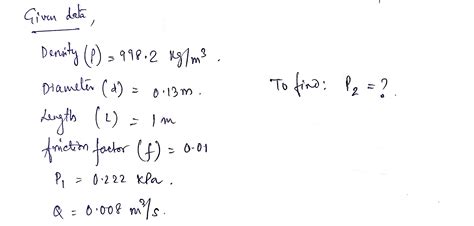 Given data,
Density (ρ) = 998.2 Kg/m³
Diameter (d) = 0.13m.
Length (L) = 1 m
friction factor (f) = 0.01
P₁ = 0.222 KPa.
Q = 0.008 m³/s.
To find: P₂ = ?.